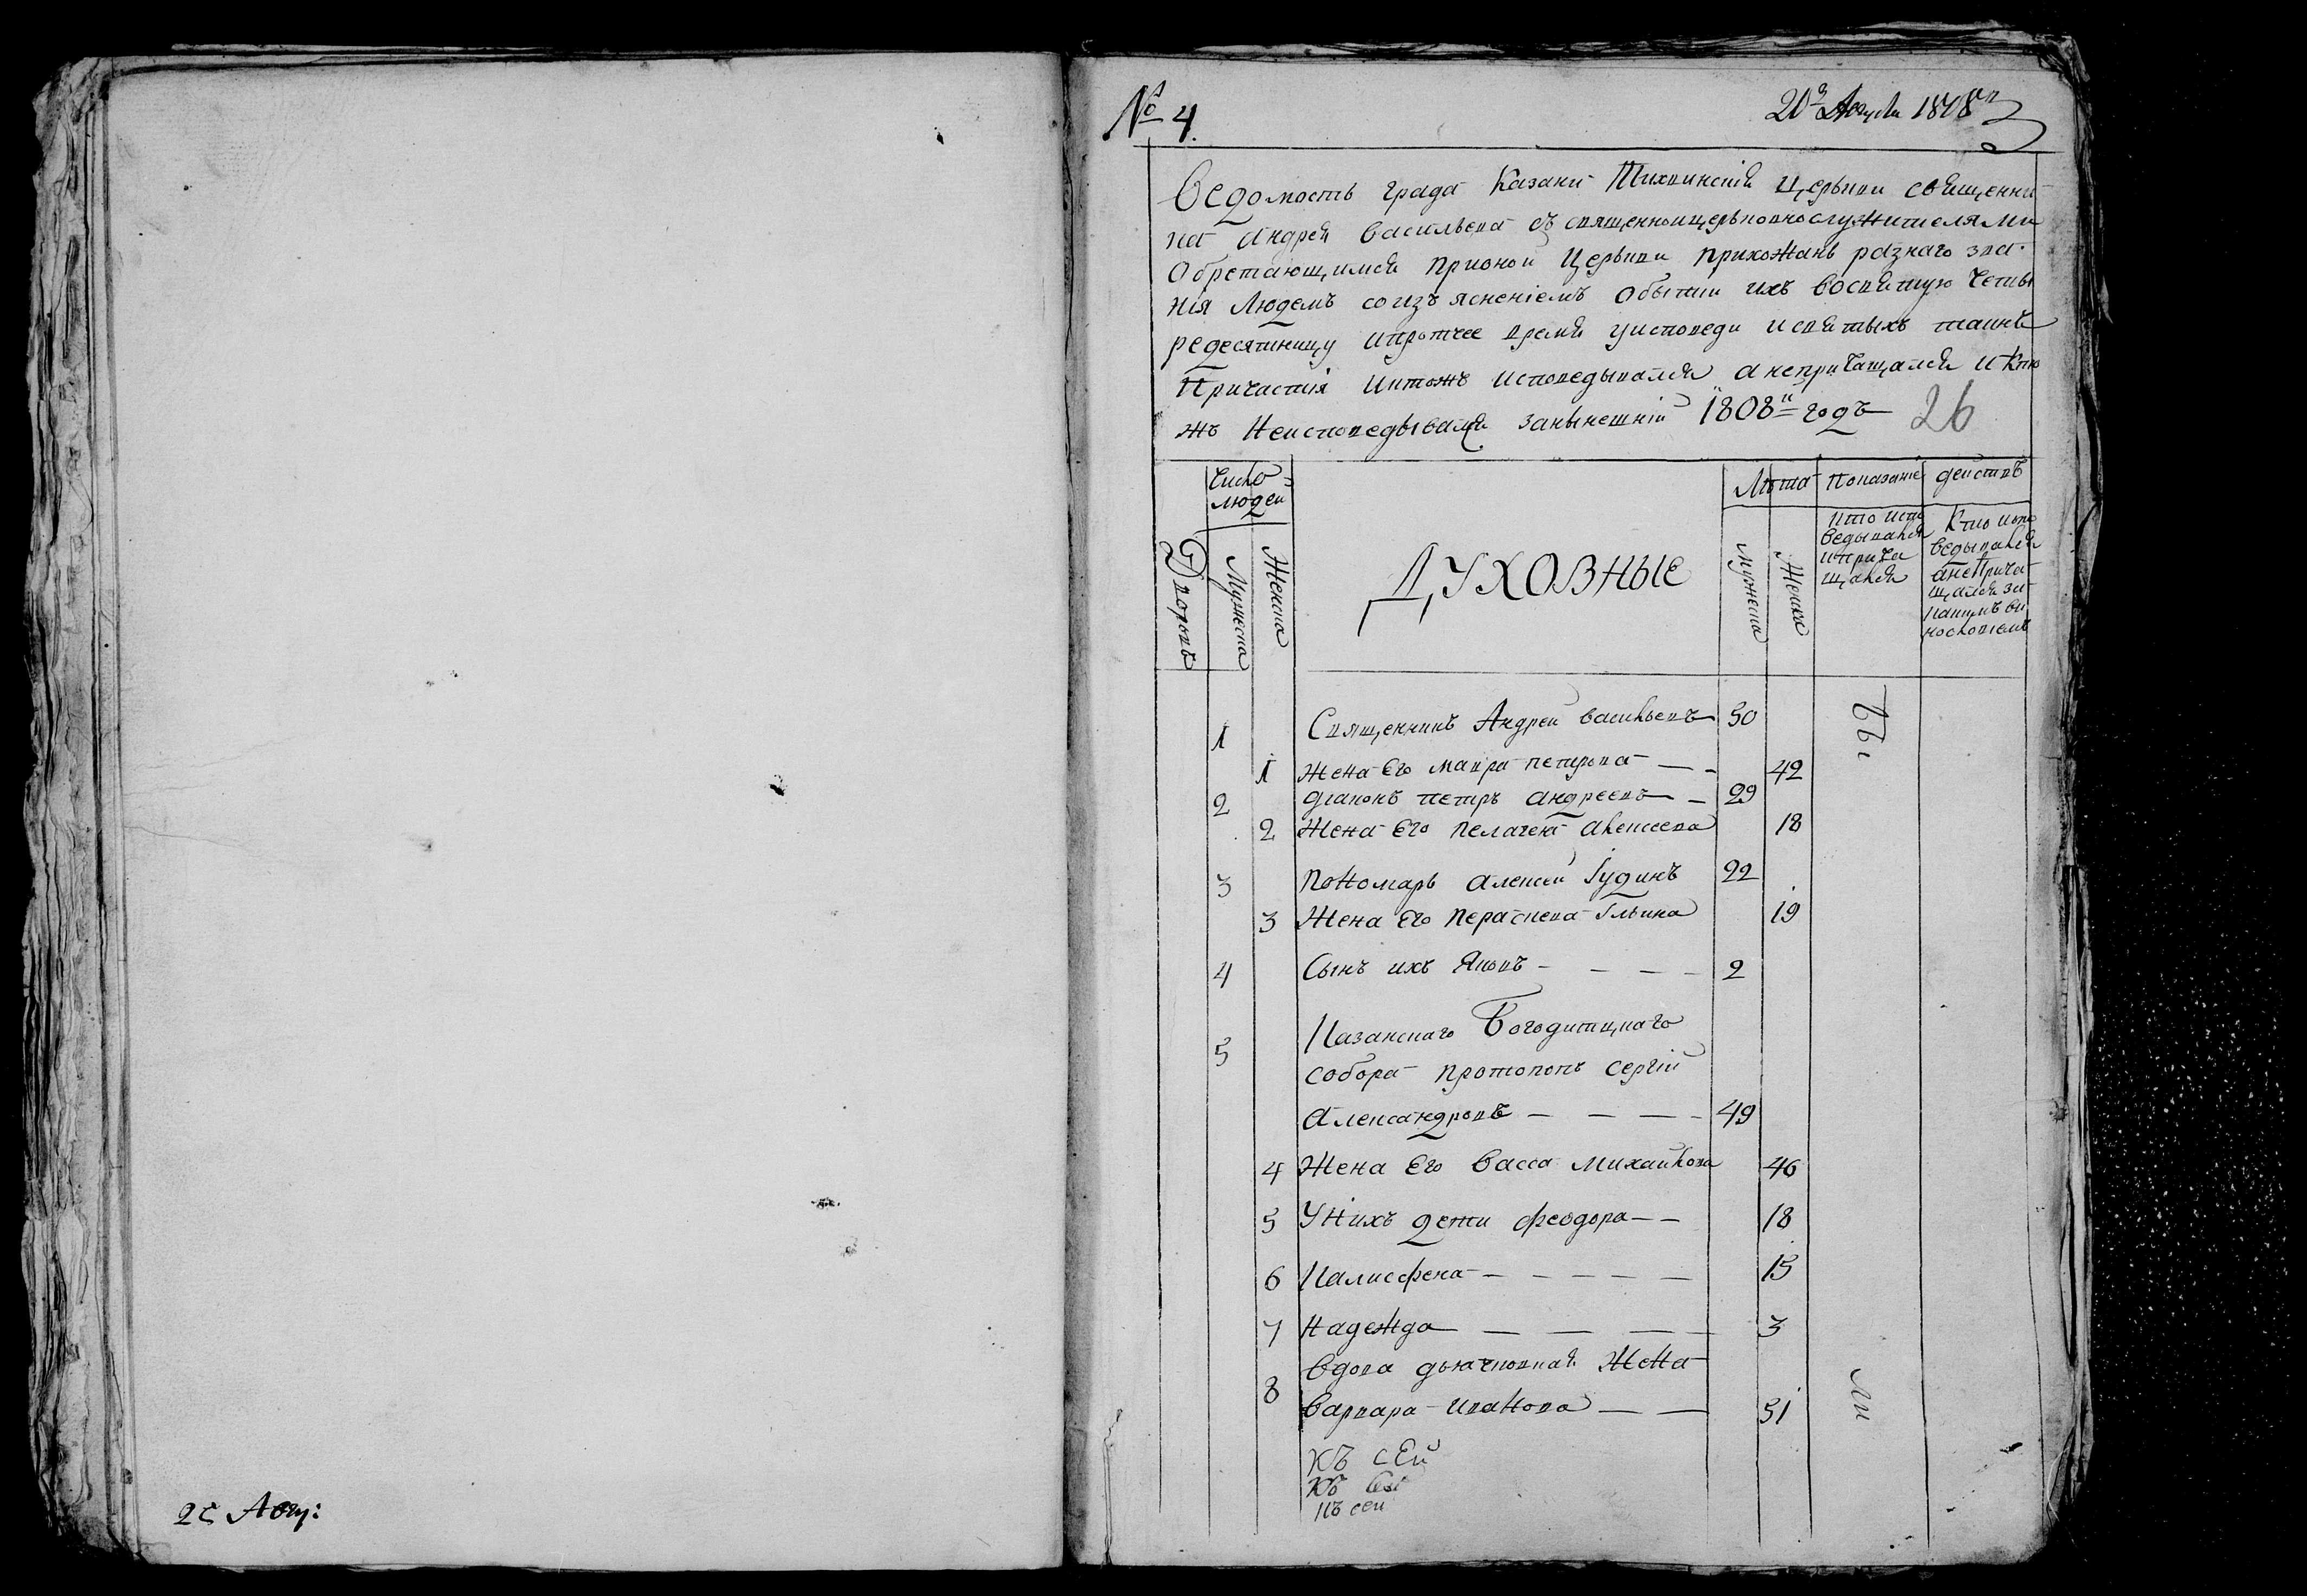 25 Авгу:
№ 4.
20го Августа 1808го
Ведомость града Казани Тихвинскія церькви священни
ка Андрея Васильева съ священноицерьковнослужителями
Обретающимся прионой Церькви прихожанъ разнаго зва
нія Людемъ соизъясненіемъ обытии ихъ восвятую Четы
редесятницу ипротчее время уисповеди исвятыхъ таинъ
Причастія иктожъ исповедывался анепричащался и Кто
жъ неисповедывался занынешній 1808й годъ
26
Число людей
Лета
Показаніе
действъ
Дворовъ
Мужеска
Женска
ДУХОВНЫЕ
Мужеска
Женска
кто испо
ведывался
иприча
щался
Кто испо
ведывался
анеприча
щался за
какимъ ви
нословіемъ
1 Священникъ Андрей Васильевъ 50
1 Жена Его Мавра петрова 42
2 Діаконъ петръ Андреевъ 29
2 Жена Его Пелагея Алексеева 18
3 Пономарь Алексей Іудинъ 22
3 Жена Его Пераскева Ільина 19
4 Сынъ ихъ Яковъ 2
5 Казанскаго Богодитцкаго
собора протопопъ Сергій
Александровъ 49
4 Жена Его Васса Михайлова 46
5 У Нихъ дети Феодора 18
6 Калисфена 15
7 Надежда 3
8 Вдова дьячковская Жена
Варвара Иванова 51
бы
ли
Къ сей
Къ
Къ сеи